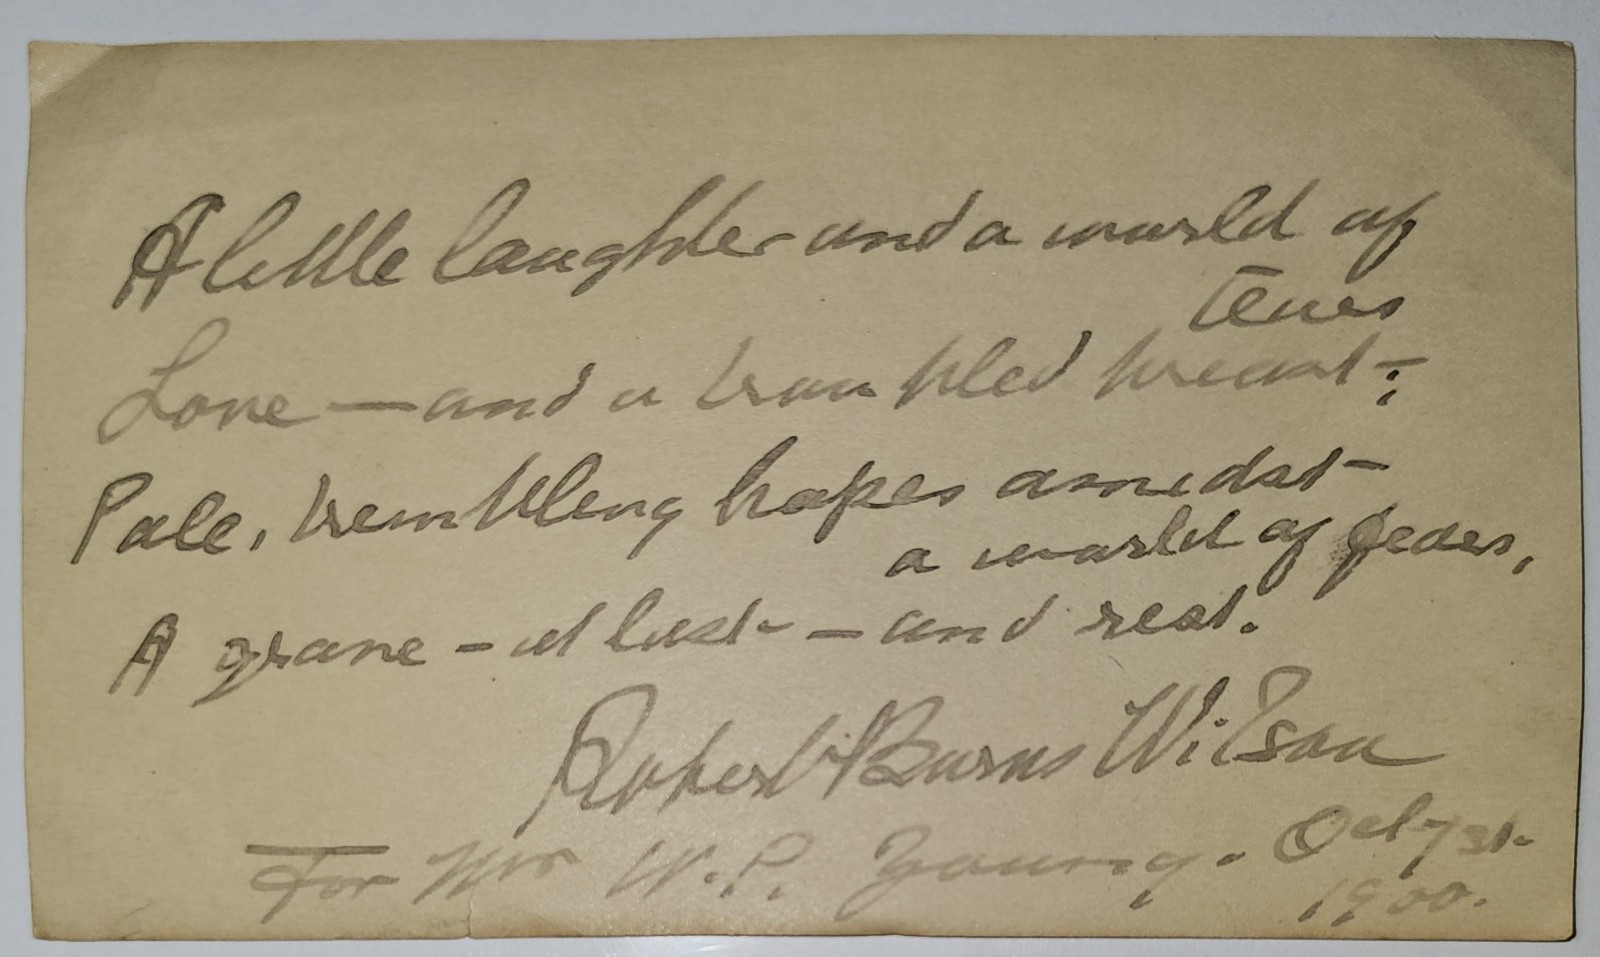 A little laughter and a world of
tears
Love — and a troubled breast — ;
Pale, trembling hopes amidst
a world of fears,
A grave — at last — and rest.
Robert Burns Wilson
For Mr W. P. Young. Oct
1900.